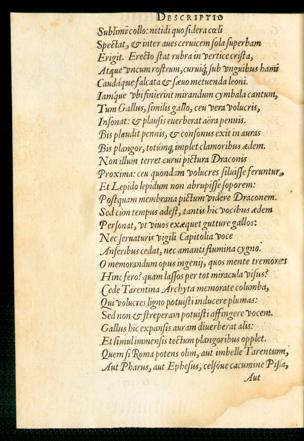 DESCRIPTIO
Sublimi collo: nitidi quo sidera cœli
Spectat, & inter aues ceruicem sola superbam
Erigit. Erecto stat rubra in vertice crista,
Atque vncum rostrum, curuiq; sub vnguibus hami
Caudáque falcata & sæuo metuenda leoni.
Iamque vbi finierint mirandum cymbala cantum,
Tum Gallus, similis gallo, ceu vera volucris,
Insonat: & plausis euerberat aëra pennis.
Bis plaudit pennis, & consonus exit in auras
Bis plangor, totumq; implet clamoribus ædem.
Non illum terret curui pictura Draconis
Proxima: ceu quondam volucres siluisse feruntur,
Et Lepido lepidum non abrupisse soporem:
Postquam membrana pictum videre Draconem.
Sed cùm tempus adest, tantis hic vocibus ædem
Personat, vt viuos exæquet gutture gallos:
Nec seruaturis vigili Capitolia voce
Anseribus cedat, nec amanti flumina cygno.
O memorandum opus ingenij, quos mente tremores
Hinc fero? quam lassos per tot miracula visus?
Cede Tarentina Archyta memorate columba,
Qui volucres ligno potuisti inducere plumas:
Sed non & streperam potuisti affingere vocem.
Gallus hic expansis auram diuerberat alis:
Et simul immensis tectum plangoribus opplet.
Quem si Roma potens olim, aut imbelle Tarentum,
Aut Pharus, aut Ephesus, celsóue cacumine Pisa,
Aut